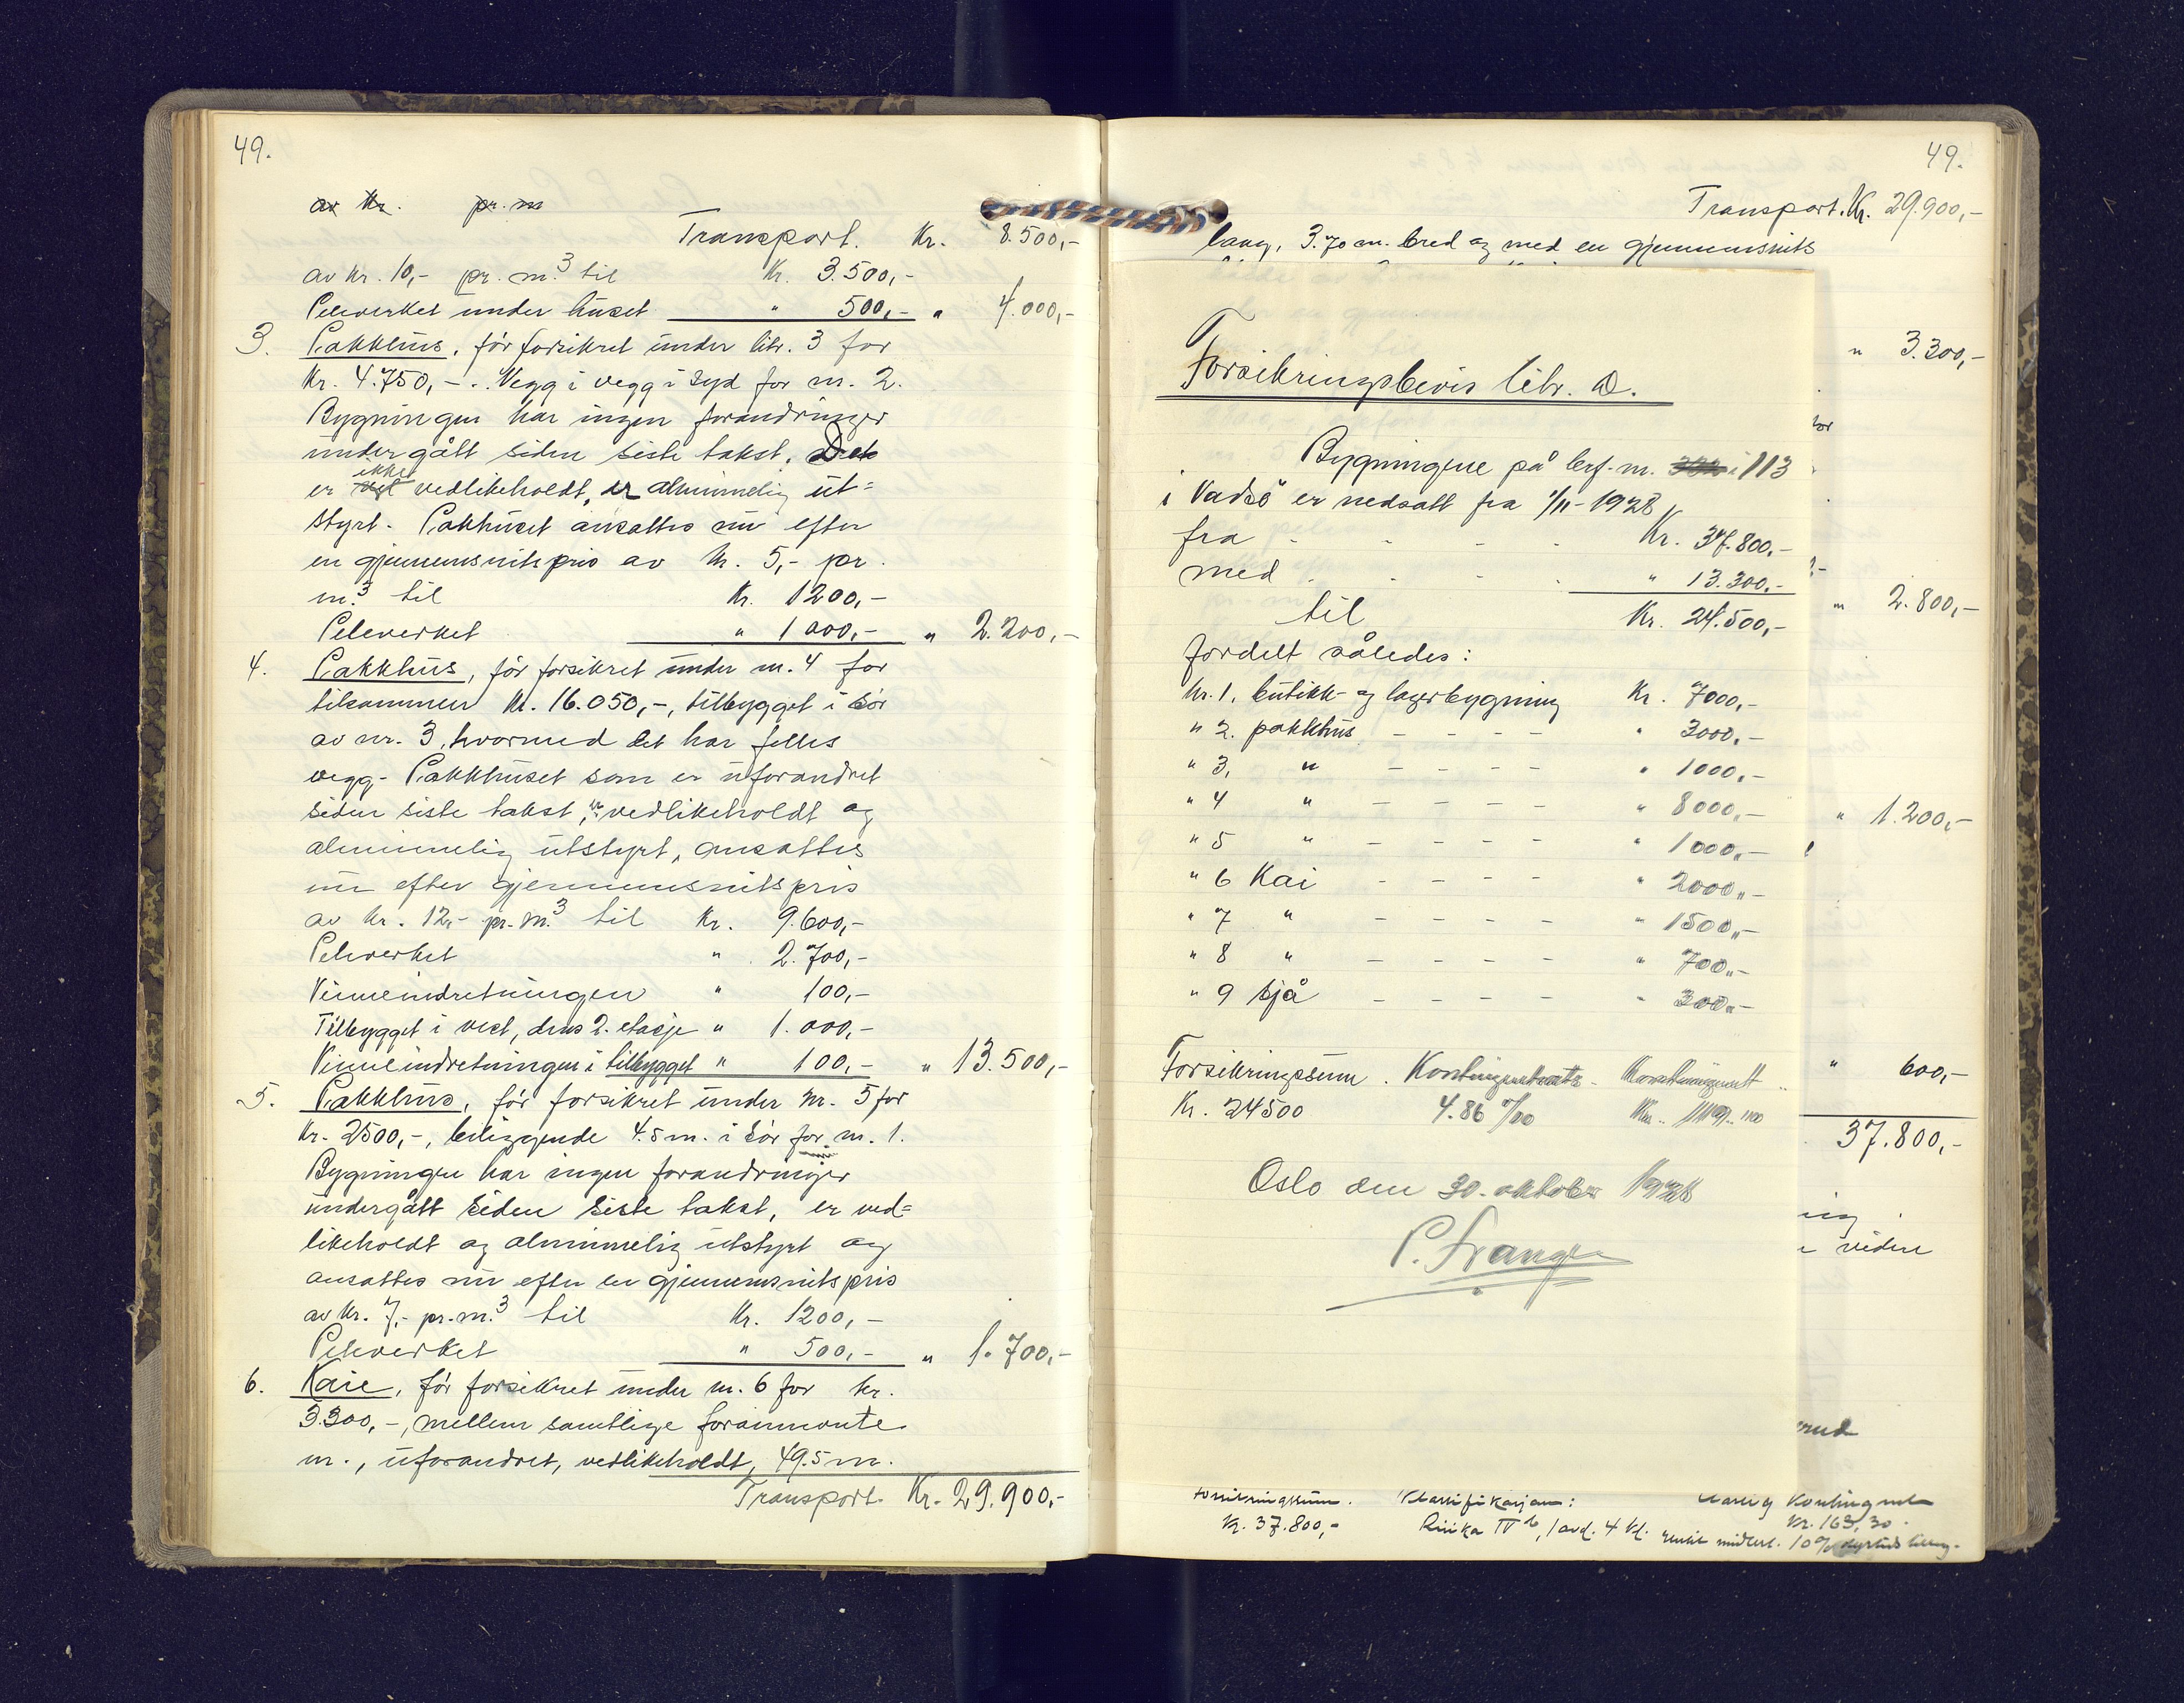 49.
av kr. pr. m
Transport. Kr. 8.500,-
av kr. 10,- pr. m.³ til Kr. 3.500,-
Peleverket under huset " 500,- " 4.000,-
3. Pakkhus, før forsikret under litr. 3 for
Kr. 4.750,-. Vegg i vegg i syd for nr. 2.
Bygningen har ingen forandringer
undergått siden siste takst. Det
er vel ikke vedlikeholdt, er alminnelig ut=
styrt. Pakhuset ansattes nu efter
en gjennemsnitspris av kr. 5,- pr.
m.³ til Kr. 1200,-
Peleverket " 1000,- " 2.200,-
4. Pakkhus, før forsikret under nr. 4 for
tilsammen kr. 16.050,-, tilbygget i sør
av nr. 3, hvormed det har felles
vegg. Pakkhuset som er uforandret
siden siste takst, er vedlikeholdt og
alminnelig utstyrt, ansattes
nu efter gjennemsnitspris
av kr. 12,- pr. m.³ til Kr. 9.600,-
Peleverket " 2.700,-
Vinneindretningen " 100,-
Tilbygget i vest, dens 2. etasje " 1.000,-
Vinneindretningen i tilbygget " 100,- " 13.500,-
5. Pakkhus, før forsikret under nr. 5 for
Kr. 2500,-, beliggende 4.5 m. i sør for nr. 1.
Bygningen har ingen forandringer
undergått siden siste takst, er ved=
likeholdt og alminnelig utstyrt og
ansattes nu efter en gjennemsnitspris
av kr. 7,- pr. m.³ til Kr. 1200,-
Peleverket " 500,- " 1.700,-
6. Kaie, før forsikret under nr. 6 for kr.
3.300,-, mellem samtlige forannevnte
nr., uforandret, vedlikeholdt, 49.5 m.
Transport Kr. 29.900,-
49.
Transport. Kr. 29.900,-
lang, 3.70 m. bred og med en gjennemsnits
" 3.300,-
" 2.800,-
" 1.200,-
" 600,-
37.800,-
videre
Forsikringsbevis litr. D.
Bygningene på brf. nr. 113
i Vadsø er nedsatt fra 1/11-1928
fra - - - - Kr. 37.800,-
med - - - - " 13.300,-
til Kr. 24.500,-
fordelt således:
Nr. 1. butikk- og lagerbygning Kr. 7000,-
" 2. pakkhus - - - - " 3000,-
" 3, " - - - - " 1000,-
" 4 " - - - - " 8000,-
" 5 " - - - - " 1000,-
" 6 Kai - - - - " 2000,-
" 7 " - - - - " 1500,-
" 8 " - - - - " 700,-
" 9 Sjå - - - - " 300,-
Forsikringssum. Kontingentsats. Kontingent
Kr. 24500 4.86 ‰ Kr.
Oslo den 30. oktober 1928
Forsikringssum. Klassifikasjon: Aarlig Kontingent
Kr. 37.800,- Risiko IV b, 1 avd. 4 kl. Kr. 163,30.
midlert. 10% dyrtids tillegg.